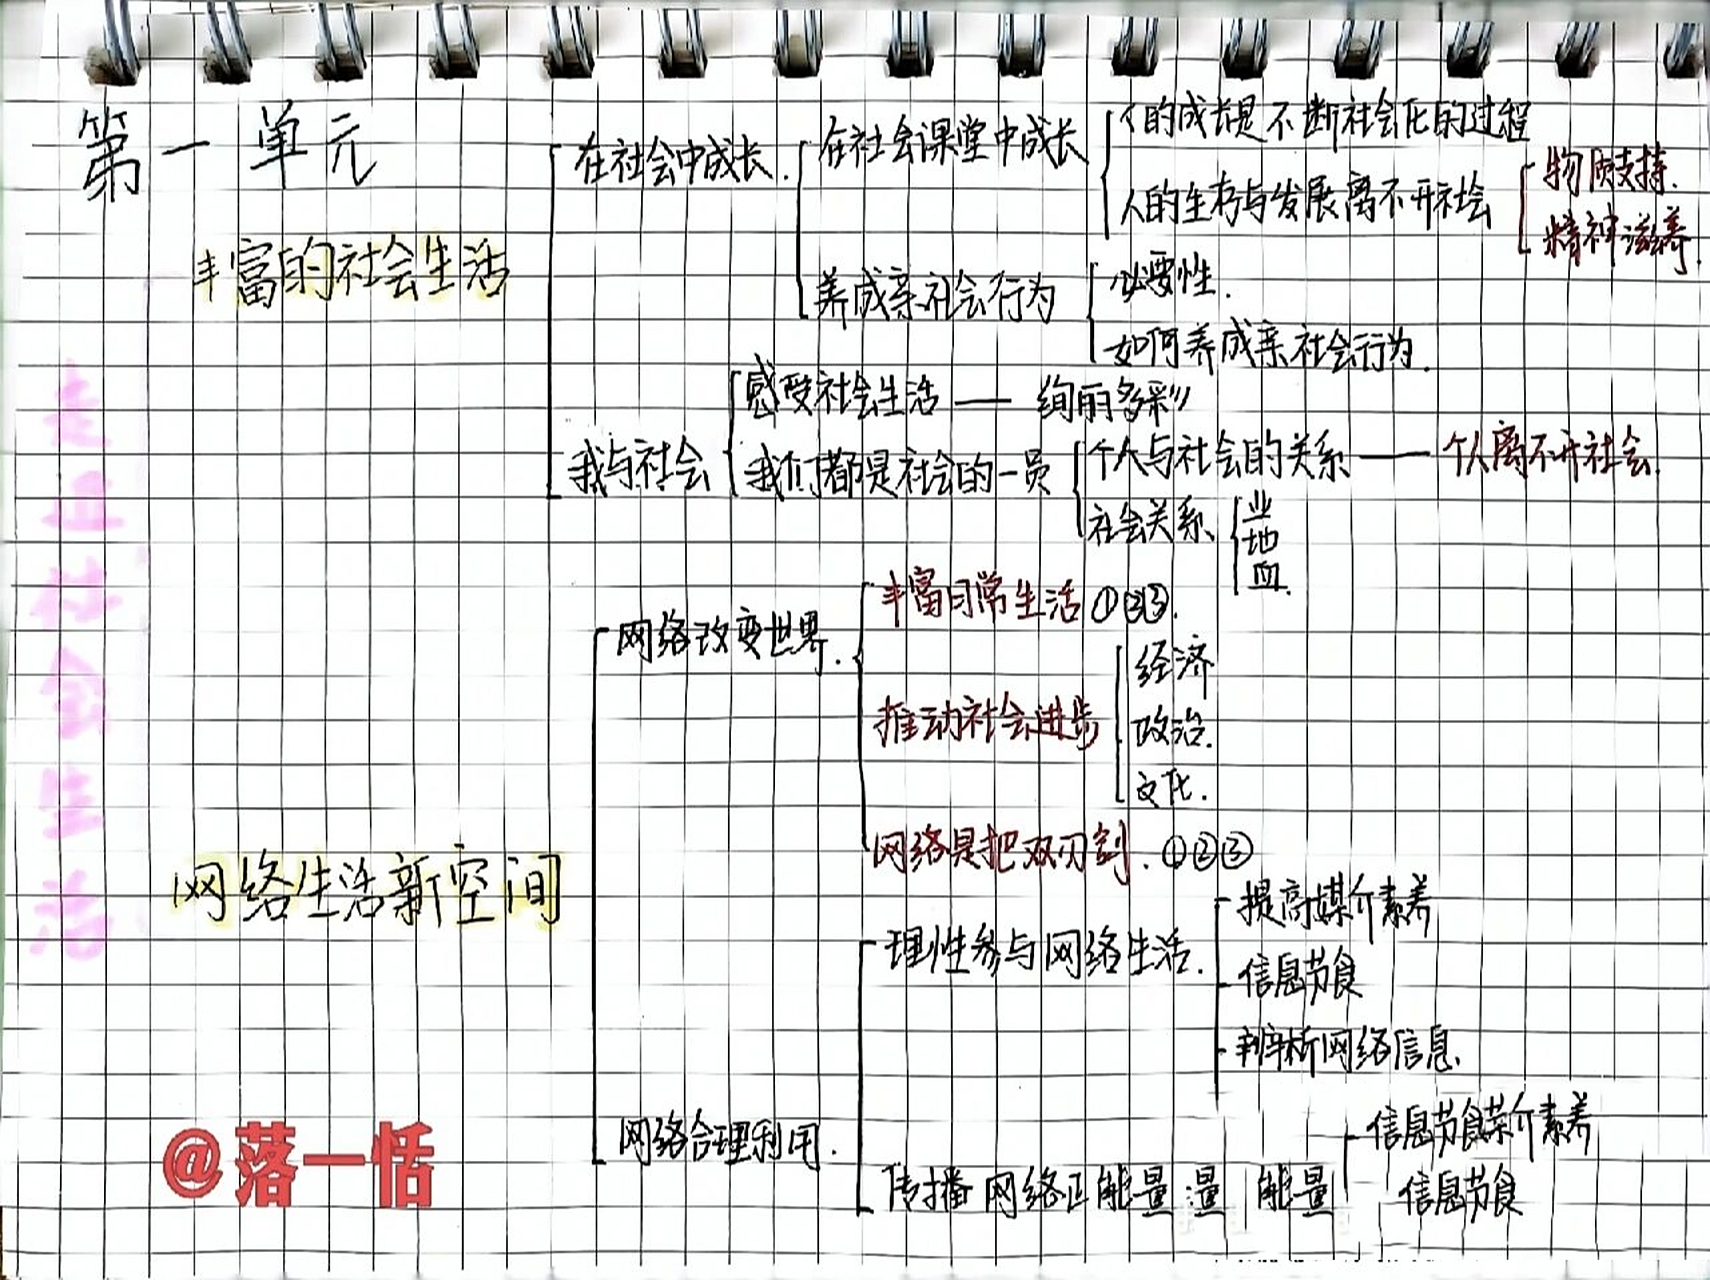 第一单元
丰富的社会生活
走进社会生活
在社会中成长.
在社会课堂中成长
人的成长是不断社会化的过程
人的生存与发展离不开社会
物质支持.
精神滋养.
养成亲社会行为
必要性.
如何养成亲社会行为.
我与社会
感受社会生活 — 绚丽多彩
我们都是社会的一员
个人与社会的关系 — 个人离不开社会.
社会关系
业
地
血
网络生活新空间
网络改变世界.
丰富日常生活①②③.
推动社会进步
经济
政治.
文化.
网络是把双刃剑.①②③
网络合理利用.
理性参与网络生活.
提高媒介素养
信息节食
辨析网络信息.
传播网络正能量 量 能量
信息节食媒介素养
信息节食
@落一恬